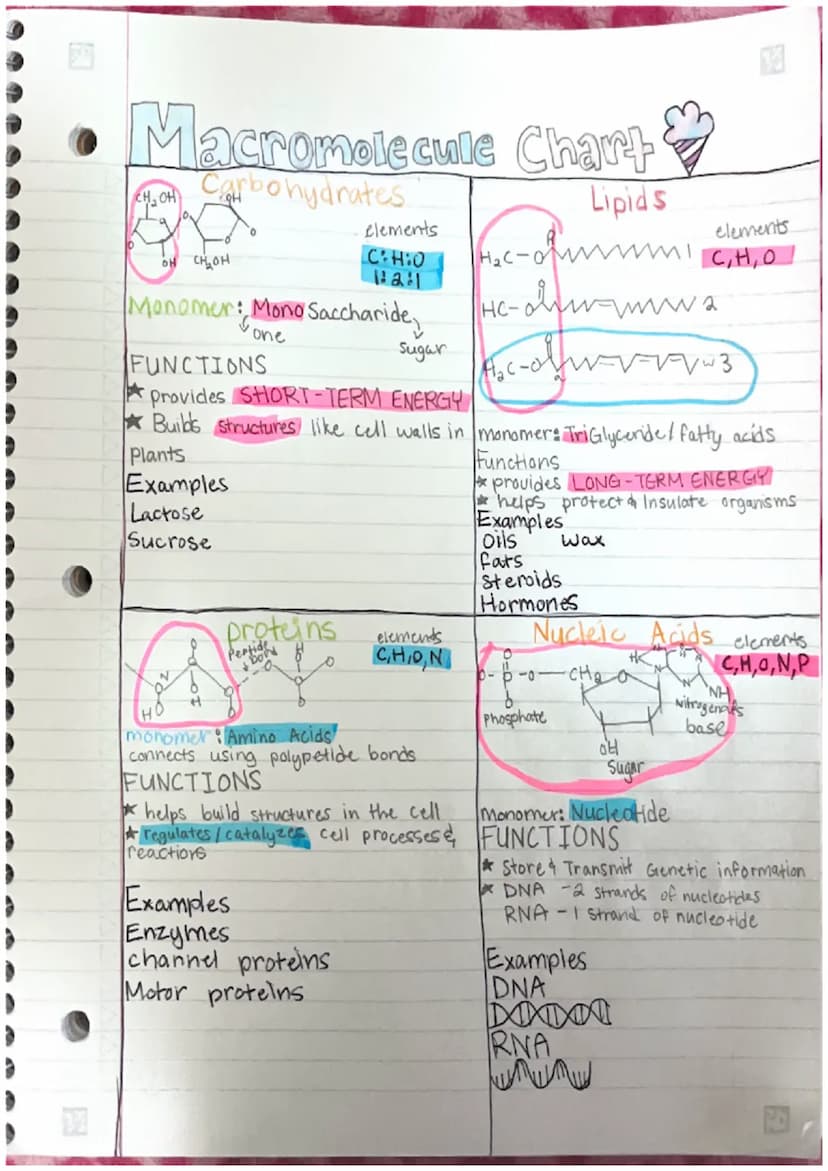 Macromolecule Chart
Carbohydrates
CH₂OH
OH
O
O
O
O
OH
CH₂OH
elements
C:H:O
1:2:1
Monomer: MonoSaccharide
one
Sugar
FUNCTIONS
★ provides SHORT-TERM ENERGY
★ Builds structures like cell walls in
Plants
Examples
Lactose
Sucrose
Lipids
elements
C,H,O
H₂C-O
1
HC-O
2
H₂C-O
3
monomer: TriGlyceride/fatty acids
Functions
★ provides LONG-TERM ENERGY
★ helps protect & Insulate organisms
Examples
Oils Wax
fats
Steroids
Hormones
proteins
elements
C,H,O,N
Peptide
bond
N
H
H
monomer: Amino Acids
connects using polypetide bonds
FUNCTIONS
★ helps build structures in the cell
★ regulates/catalyzes cell processes &
reactions
Examples
Enzymes
channel proteins
Motor proteins
Nucleic Acids
elements
C,H,O,N,P
O
O-P-O-CH₂
O
O
Phosphate
N
N
NH
Nitrogenous
base
OH
Sugar
Monomer: Nucleotide
FUNCTIONS
★ Store & Transmit Genetic information
★ DNA -2 strands of nucleotides
RNA -1 strand of nucleotide
Examples
DNA
RNA